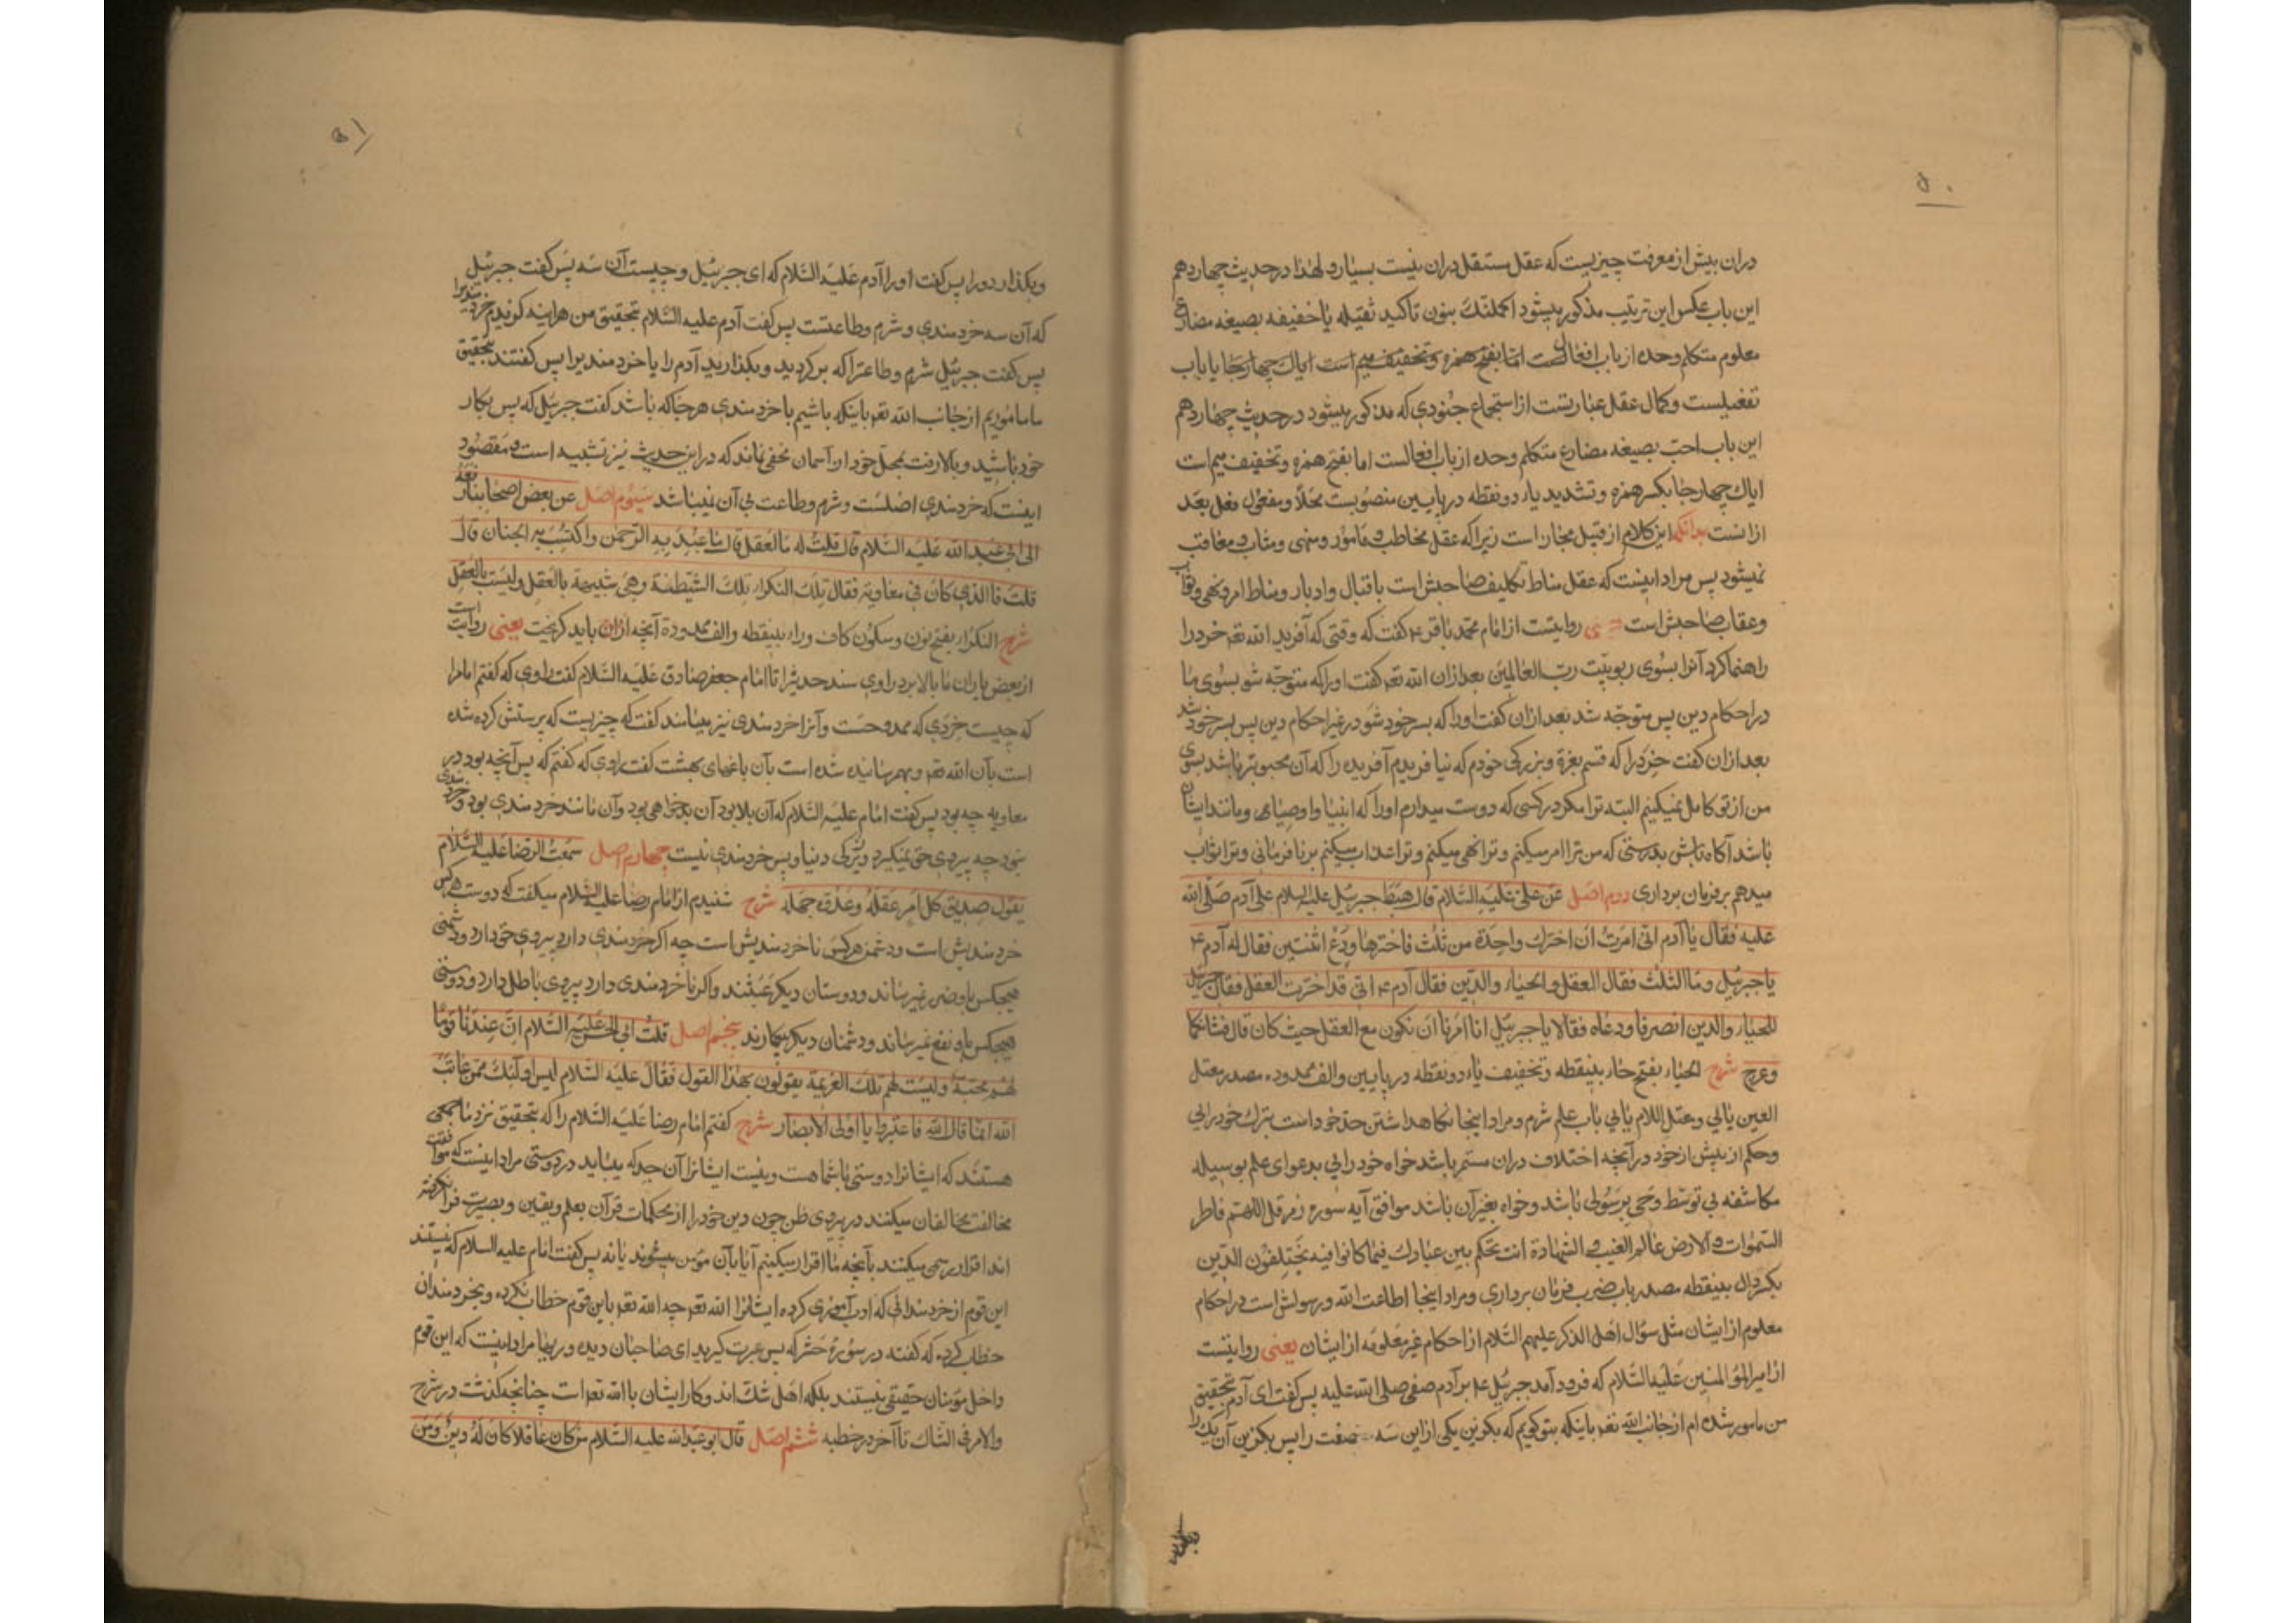 ۵۰
دران بیش از معرفت چیزیست که عقل مستقل دران نیست بسیارد لهذا در حدیث چهاردهم
این باب عکس این ترتیب مذکور میشود اکملتک بنون تاکید ثقیله یا خفیفه بصیغه مضارع
معلوم متکلم وحده از باب افعال است اما بفتح همزه وتخفیف میم است ایاک چهارجا یا باب
تفعیلست وکمال عقل عبارتست از استجماع جنودی که مذکور میشود در حدیث چهاردهم
این باب احب بصیغه مضارع متکلم وحده از باب افعالست اما بفتح همزه وتخفیف میم است
ایاک چهارجا بکسر همزه وتشدید یاء دو نقطه در پایین منصوبست محلا ومفعول فعل بعد
ازانست بدانکه این کلام از قبیل مجاز است زیرا که عقل مخاطب و مامور ومنهی ومثاب ومعاقب
نمیشود پس مراد اینست که عقل مناط تکلیف صاحبش است باقبال وادبار ومناط امر ونهی وثواب
وعقاب صاحبش است یعنی روایتست از امام محمد باقر ع گفت که وقتی که آفرید الله تعه خرد را
راهنما کرد آنرا بسوی ربوبیت رب العالمین بعد ازان الله تعه گفت اورا که متوجه شو بسوی ما
در احکام دین پس متوجه شد بعد ازان گفت اورا که بسر خود شو در غیر احکام دین پس بسر خود شد
بعد ازان گفت خرد را که قسم بعزة وبزرکی خودم که نیافریدم آفریده را که آن محبوبتر باشد بسوی
من از تو کامل نمیکنم البته ترا مکر در کسی که دوست میدارم اورا که انبیا واوصیای ومانند ایشان
باشد آکاه باش بدرستی که من ترا امر میکنم وترا نهی میکنم وترا عذاب میکنم بر نافرمانی وترا ثواب
میدهم بر فرمان برداری دوم اصل عن علی علیه السلام قال هبط جبرئیل علیه السلام علی آدم صلی الله
علیه فقال یا آدم انی امرت ان اخیرک واحدة من ثلث فاخترها ودع اثنتین فقال له آدم ع
یا جبرئیل وما الثلث فقال العقل والحیاء والدین فقال آدم ع انی قد اخترت العقل فقال جبرئیل
للحیاء والدین انصرفا ودعاه فقالا یا جبرئیل انا امرنا ان نکون مع العقل حیث کان قال فشانکما
وعرج شرح الحیاء بفتح حاء بینقطه وتخفیف یاء دو نقطه در پایین والف ممدوده مصدر معتل
العین یایی ومعتل اللام یایی باب علم شرم ومراد اینجا نکاهداشتن حد خود است بترک خودرایی
وحکم از پیش از خود در آنچه اختلاف دران مستمر باشد خواه خودرایی بدعوای علم بوسیله
مکاشفه بی توسط وحی برسولی باشد وخواه بغیر آن باشد موافق آیه سوره زمر قل اللهم فاطر
السموات والارض عالم الغیب والشهادة انت تحکم بین عبادک فیما کانوا فیه یختلفون الدین
بکسر دال بینقطه مصدر باب ضرب فرمان برداری ومراد اینجا اطاعت الله ورسولش است در احکام
معلوم از ایشان مثل سؤال اهل الذکر علیهم السلام از احکام غیر معلومه از ایشان یعنی روایتست
از امیر المؤمنین علیه السلام که فرود آمد جبرئیل ع بر آدم صفی صلی الله علیه پس گفت ای آدم بتحقیق
من مامور شده ام از جانب الله تعه باینکه بتو کویم که بکزین یکی از این سه صفت را پس بکزین آن یک را
۵۱
وبکذار دو را پس گفت اورا آدم علیه السلام که ای جبرئیل وچیست آن سه پس گفت جبرئیل
که آن سه خردمندی وشرم وطاعتست پس گفت آدم علیه السلام بتحقیق من هرآینه کزیدم خردمندیرا
پس گفت جبرئیل شرم وطاعترا که برکردید وبکذارید آدم را با خردمندی را پس گفتند بتحقیق
ما ماموریم از جانب الله تعه باینکه باشیم با خردمندی هرجا که باشد گفت جبرئیل که پس بکار
خود باشید وبالا رفت بمحل خود از آسمان مخفی نماند که در این حدیث نیز تشبیه است ومقصود
اینست که خردمندی اصلست وشرم وطاعت بی آن نمیباشد سیوم اصل عن بعض اصحابنا رفعه
الی ابی عبد الله علیه السلام قال قلت له ما العقل قال ما عبد به الرحمن واکتسب به الجنان قال
قلت فالذی کان فی معاویه فقال تلک النکراء تلک الشیطنة وهی شبیهة بالعقل ولیست بالعقل
شرح النکراء بفتح نون وسکون کاف وراء بینقطه والف ممدوده آنچه ازان باید کریخت یعنی روایت است
از بعض یاران ما بالا برد راوی سند حدیث را تا امام جعفر صادق علیه السلام گفت راوی که گفتم امام را
که چیست خردی که ممدوحست وآنرا خردمندی نیز مینامند گفت که چیزیست که پرستش کرده شده
است بآن الله تعه وبهم رسانیده شده است بآن باغهای بهشت گفت راوی که گفتم که پس آنچه بود در
معاویه چه بود پس گفت امام علیه السلام که آن بلا بود آن بدخواهی بود وآن مانند خردمندی بود وخردمندی
نبود چه پیروی حق نمیکرد وزیرکی دنیا وپس خردمندی نیست چهارم اصل سمعت الرضا علیه السلام
یقول صدیق کل امرء عقله وعدوه جهله شرح شنیدم از امام رضا علیه السلام میکفت که دوست هر کس
خردمندیش است ودشمن هر کس ناخردمندیش است چه اکر خردمندی دارد پیروی حق دارد ودشمنی
هیچکس باو ضرر نمیرساند ودوستان دیکر عبثند واکر ناخردمندی دارد پیروی باطل دارد ودوستی
هیچکس باو نفع نمیرساند ودشمنان دیکر بیکارند پنجم اصل قلت لابی الحسن علیه السلام ان عندنا قوما
لهم محبة ولیست لهم تلک العزیمة یقولون بهذا القول فقال علیه السلام لیس اولئک ممن عاتب
الله انما قال الله فاعتبروا یا اولی الابصار شرح گفتم امام رضا علیه السلام را که بتحقیق نزد ما جمعی
هستند که ایشانرا دوستی با شما هست ونیست ایشانرا آن جد که بباید در دوستی مراد اینست که موافقت
مخالفت مخالفان میکنند در پیروی ظن چون دین خود را از محکمات قرآن بعلم ویقین وبصیرت فرا نکرفته
اند اقرار رسمی میکنند بآنچه ما اقرار میکنیم آیا بآن مؤمن میشوند یا نه پس گفت امام علیه السلام که نیستند
این قوم از خردمندانی که ادب آموزی کرده ایشانرا الله تعه چه الله تعه باین قوم خطاب نکرده وبخردمندان
خطاب کرده که گفته در سورۀ حشر که پس عبرت کیرید ای صاحبان دیده وریها مراد اینست که این قوم
داخل مؤمنان حقیقی نیستند بلکه اهل شک اند وکار ایشان با الله تعه است چنانچه کذشت در شرح
والامر فی الشاک تا آخر در خطبه ششم اصل قال ابو عبد الله علیه السلام من کان عاقلا کان له دین ومن